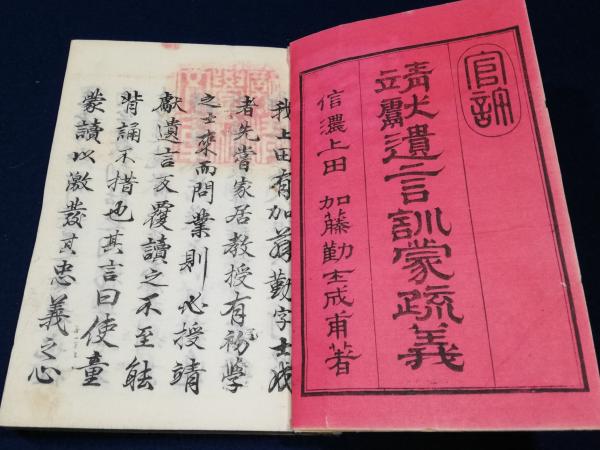 官許
靖獻遺言訓蒙疏義
信濃上田 加藤勤士成甫著
我上田有加翁勤字士成
者先嘗家居教授有初學
之士來而問業則必授靖
獻遺言反覆讀之不至能
背誦不措也其言曰使童
蒙讀以激發其忠義之心